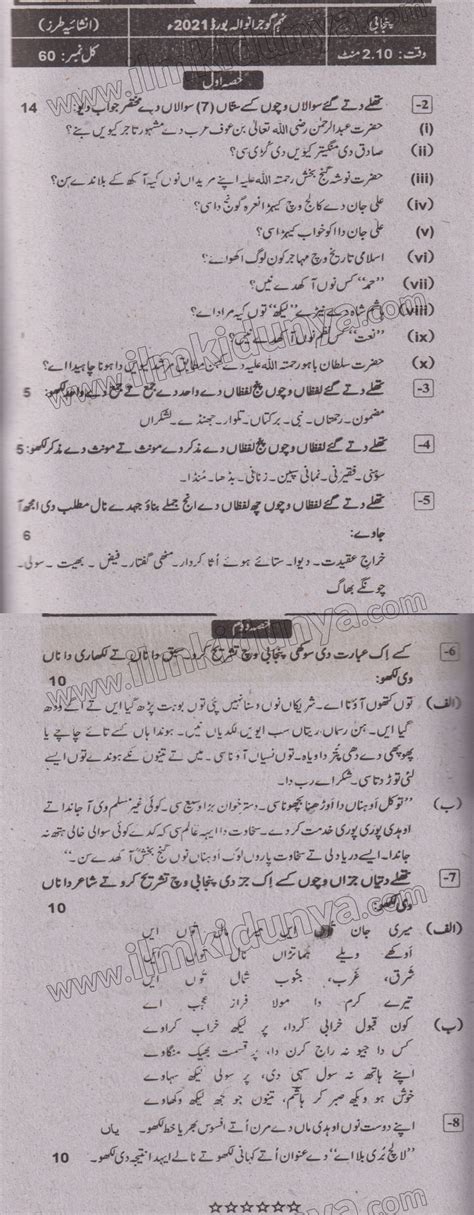 پنجابی
نہم گوجرانوالہ بورڈ 2021ء
(انشائیہ طرز)
وقت: 2.10 منٹ
کل نمبر: 60
حصہ اول
2- تھلے دتے گئے سوالاں وچوں کسے ستاں (7) سوالاں دے مختصر جواب دیو: 14
(i) حضرت عبدالرحمٰن رضی اللہ تعالیٰ بن عوف عرب دے مشہور تاجر کیویں بنے؟
(ii) صادق دی منگیتر کیویں دی کُڑی سی؟
(iii) حضرت نوشہ گنج بخش رحمتہ اللہ علیہ اپنے مریداں نوں کیہ آکھ کے بلاندے ہن؟
(iv) علی جان دے کالج وچ کیہڑا نعرہ گونج دا سی؟
(v) علی جان دا کوخواب کیہڑا سی؟
(vi) اسلامی تاریخ وچ مہاجر کون لوگ اکھوائے؟
(vii) "حمد" کس نوں آکھدے نیں؟
(viii) ہاشم شاہ دے نیڑے "لیکھ" توں کیہ مراد اے؟
(ix) "نعت" کس نظم نوں آکھدے نیں؟
(x) حضرت سلطان باہو رحمتہ اللہ علیہ دے کہن مطابق مرشد کیویں دا ہونا چاہیدا اے؟
3- تھلے دتے گئے لفظاں وچوں پنج لفظاں دے واحد دے جمع تے جمع دے واحد لکھو: 5
مضمون۔ رحمتاں۔ نبی۔ برکتاں۔ تلوار۔ جھنڈے۔ لشکراں
4- تھلے دتے گئے لفظاں وچوں پنج لفظاں دے مذکر دے مونث تے مونث دے مذکر لکھو: 5
سوہنی۔ فقیرنی۔ نمانی۔ پین۔ زنانی۔ بڈھا۔ مُنڈا۔
5- تھلے دتے گئے لفظاں وچوں چھ لفظاں دے انج جملے بناؤ جیہدے نال مطلب وی ابھر آ
جاوے: 6
خراج عقیدت۔ دیوا۔ ستائے ہوئے۔ اُثا کردار۔ مٹھی گفتار۔ فیض۔ بھیت۔ سولی۔
چونکے بھاگ
حصہ دوم
6- کسے اِک عبارت دی سوکھی پنجابی وچ تشریح کرو۔ سبق دا ناں تے لکھاری دا ناں
وی لکھو: 10
(الف) توں کتھوں آؤنا اے۔ شریکاں نوں دسنا نہیں پئی توں بوہت پڑھ گیا ایں تے اگے ودھ
گیا ایں۔ ہن رسماں، ریتاں سب ایویں لگدیاں نیں۔ ہوندا ہاں کسے تائے چاچے یا
پھوپھی دے دھی پُتر دا ویاہ۔ توں نسیاں آؤنا سی۔ میں تے تینوں نکے ہوندے توں ایسے
لئی توڑ دتا سی۔ شکر اے رب دا۔
(ب) "توکل اوہناں دا اوڑھنا بچھونا سی۔ دستر خوان بڑا وسیع سی۔ کوئی غیر مسلم وی آ جاندا تے
اوہدی پوری پوری خدمت کردے۔ سخاوت دا ایہہ عالم سی کہ کدے کوئی سوالی خالی ہتھ نہ
جاندا۔ ایسے دریا دلی تے سخاوت پاروں لوک اوہناں نوں گنج بخش آکھدے سن۔"
7- تھلے دتیاں جزاں وچوں کسے اِک جز دی پنجابی وچ تشریح کرو تے شاعر دا ناں
وی لکھو: 10
(الف) میری جان ایں میر توں ایں
اوکھے ویلے نال توں ایں
شرق، غرب، جنوب شمال توں ایں
تیرے کرم دا مولا فراز عجب اے
(ب) کون قبول خرابی کردا، پر لیکھ خراب کراوے
کس دا جیو نہ راج کرن دا، پر قسمت بھیک منگاوے
اپنے ہاتھ نہ سول سہی دی، پر سولی لیکھ سہاوے
خوش ہو ویکھ صبر کر ہاشم، تینوں جو جھ لیکھ وکھاوے
8- اپنے دوست نوں اوہدی ماں دے مرن اُتے افسوس بھریا خط لکھو۔ یاں
"لالچ بُری بلا اے" دے عنوان اُتے کہانی لکھو تے نالے ایہدا نتیجہ وی لکھو۔ 10
☆☆☆☆☆☆
www.ilmkidunya.com